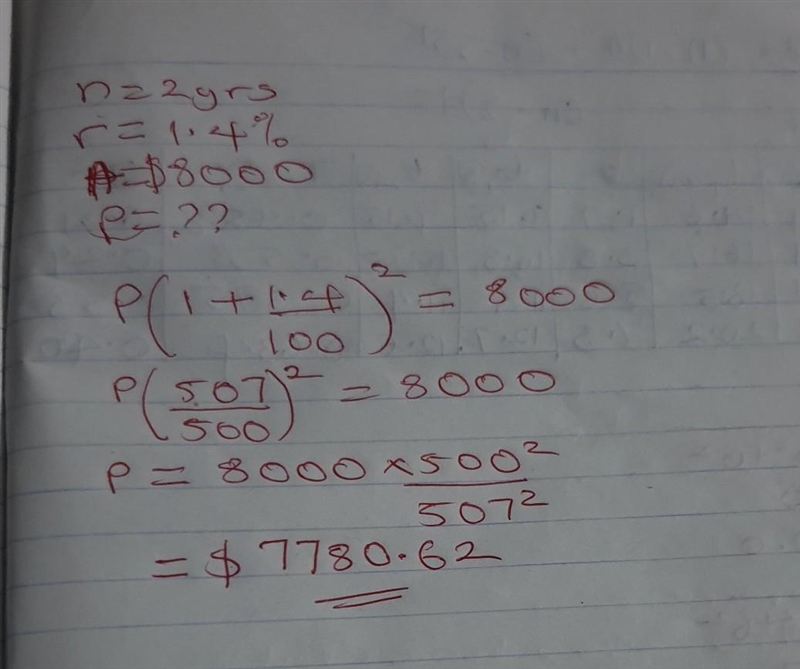 n = 2yrs
r = 1.4%
A = $8000
P = ??
P(1 + 1.4/100)² = 8000
P(507/500)² = 8000
P = 8000 × 500²/507²
= $ 7780.62